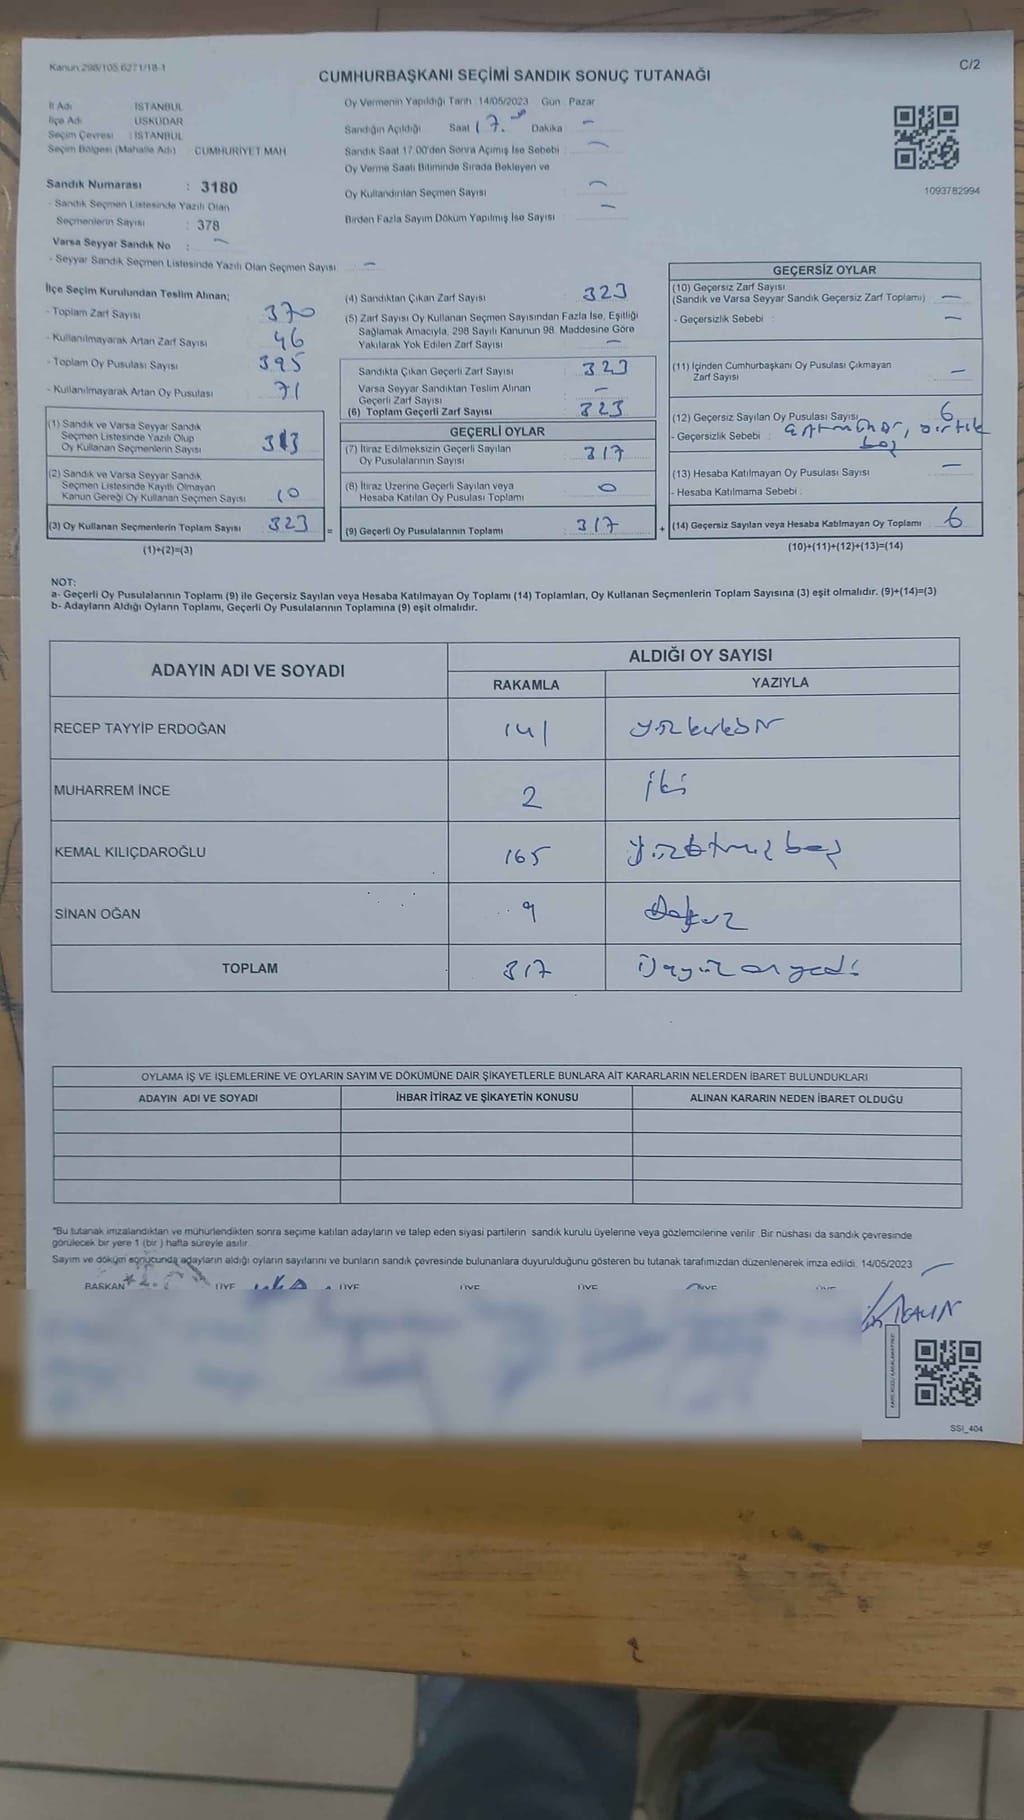 Kanun 298/105,6271/18-1
C/2
CUMHURBAŞKANI SEÇİMİ SANDIK SONUÇ TUTANAĞI
İl Adı : İSTANBUL
İlçe Adı : ÜSKÜDAR
Seçim Çevresi : İSTANBUL
Seçim Bölgesi (Mahalle Adı) CUMHURİYET MAH
Sandık Numarası : 3180
- Sandık Seçmen Listesinde Yazılı Olan
Seçmenlerin Sayısı : 378
Varsa Seyyar Sandık No : -
- Seyyar Sandık Seçmen Listesinde Yazılı Olan Seçmen Sayısı -
Oy Vermenin Yapıldığı Tarih : 14/05/2023 Gün : Pazar
Sandığın Açıldığı Saat 17.00 Dakika -
Sandık Saat 17.00'den Sonra Açılmış İse Sebebi : -
Oy Verme Saati Bitiminde Sırada Bekleyen ve
Oy Kullandırılan Seçmen Sayısı -
Birden Fazla Sayım Döküm Yapılmış İse Sayısı -
1093782994
İlçe Seçim Kurulundan Teslim Alınan;
- Toplam Zarf Sayısı 370
- Kullanılmayarak Artan Zarf Sayısı 46
- Toplam Oy Pusulası Sayısı 395
- Kullanılmayarak Artan Oy Pusulası 71
(1) Sandık ve Varsa Seyyar Sandık
Seçmen Listesinde Yazılı Olup
Oy Kullanan Seçmenlerin Sayısı 313
(2) Sandık ve Varsa Seyyar Sandık
Seçmen Listesinde Kayıtlı Olmayan
Kanun Gereği Oy Kullanan Seçmen Sayısı 10
(3) Oy Kullanan Seçmenlerin Toplam Sayısı 323 =
(1)+(2)=(3)
(4) Sandıktan Çıkan Zarf Sayısı 323
(5) Zarf Sayısı Oy Kullanan Seçmen Sayısından Fazla İse, Eşitliği
Sağlamak Amacıyla, 298 Sayılı Kanunun 98. Maddesine Göre
Yakılarak Yok Edilen Zarf Sayısı -
Sandıkta Çıkan Geçerli Zarf Sayısı 323
Varsa Seyyar Sandıktan Teslim Alınan
Geçerli Zarf Sayısı -
(6) Toplam Geçerli Zarf Sayısı 323
GEÇERLİ OYLAR
(7) İtiraz Edilmeksizin Geçerli Sayılan
Oy Pusulalarının Sayısı 317
(8) İtiraz Üzerine Geçerli Sayılan veya
Hesaba Katılan Oy Pusulası Toplamı 0
(9) Geçerli Oy Pusulalarının Toplamı 317 +
GEÇERSİZ OYLAR
(10) Geçersiz Zarf Sayısı
(Sandık ve Varsa Seyyar Sandık Geçersiz Zarf Toplamı) -
- Geçersizlik Sebebi : -
(11) İçinden Cumhurbaşkanı Oy Pusulası Çıkmayan
Zarf Sayısı -
(12) Geçersiz Sayılan Oy Pusulası Sayısı 6
- Geçersizlik Sebebi : yırtık
boş
(13) Hesaba Katılmayan Oy Pusulası Sayısı -
- Hesaba Katılmama Sebebi :
(14) Geçersiz Sayılan veya Hesaba Katılmayan Oy Toplamı 6
(10)+(11)+(12)+(13)=(14)
NOT:
a- Geçerli Oy Pusulalarının Toplamı (9) ile Geçersiz Sayılan veya Hesaba Katılmayan Oy Toplamı (14) Toplamları, Oy Kullanan Seçmenlerin Toplam Sayısına (3) eşit olmalıdır. (9)+(14)=(3)
b- Adayların Aldığı Oyların Toplamı, Geçerli Oy Pusulalarının Toplamına (9) eşit olmalıdır.
ADAYIN ADI VE SOYADI
ALDIĞI OY SAYISI
RAKAMLA YAZIYLA
RECEP TAYYİP ERDOĞAN 141 yüzkırkbir
MUHARREM İNCE 2 iki
KEMAL KILIÇDAROĞLU 165 beş
SİNAN OĞAN 9 dokuz
TOPLAM 317 üçyüz onyedi
OYLAMA İŞ VE İŞLEMLERİNE VE OYLARIN SAYIM VE DÖKÜMÜNE DAİR ŞİKAYETLERLE BUNLARA AİT KARARLARIN NELERDEN İBARET BULUNDUKLARI
ADAYIN ADI VE SOYADI İHBAR İTİRAZ VE ŞİKAYETİN KONUSU ALINAN KARARIN NEDEN İBARET OLDUĞU
*Bu tutanak imzalandıktan ve mühürlendikten sonra seçime katılan adayların ve talep eden siyasi partilerin sandık kurulu üyelerine veya gözlemcilerine verilir. Bir nüshası da sandık çevresinde
görülecek bir yere 1 (bir ) hafta süreyle asılır.
Sayım ve döküm sonucunda adayların aldığı oyların sayılarını ve bunların sandık çevresinde bulunanlara duyurulduğunu gösteren bu tutanak tarafımızdan düzenlenerek imza edildi. 14/05/2023
BAŞKAN ÜYE ÜYE ÜYE ÜYE ÜYE ÜYE
SSI_404